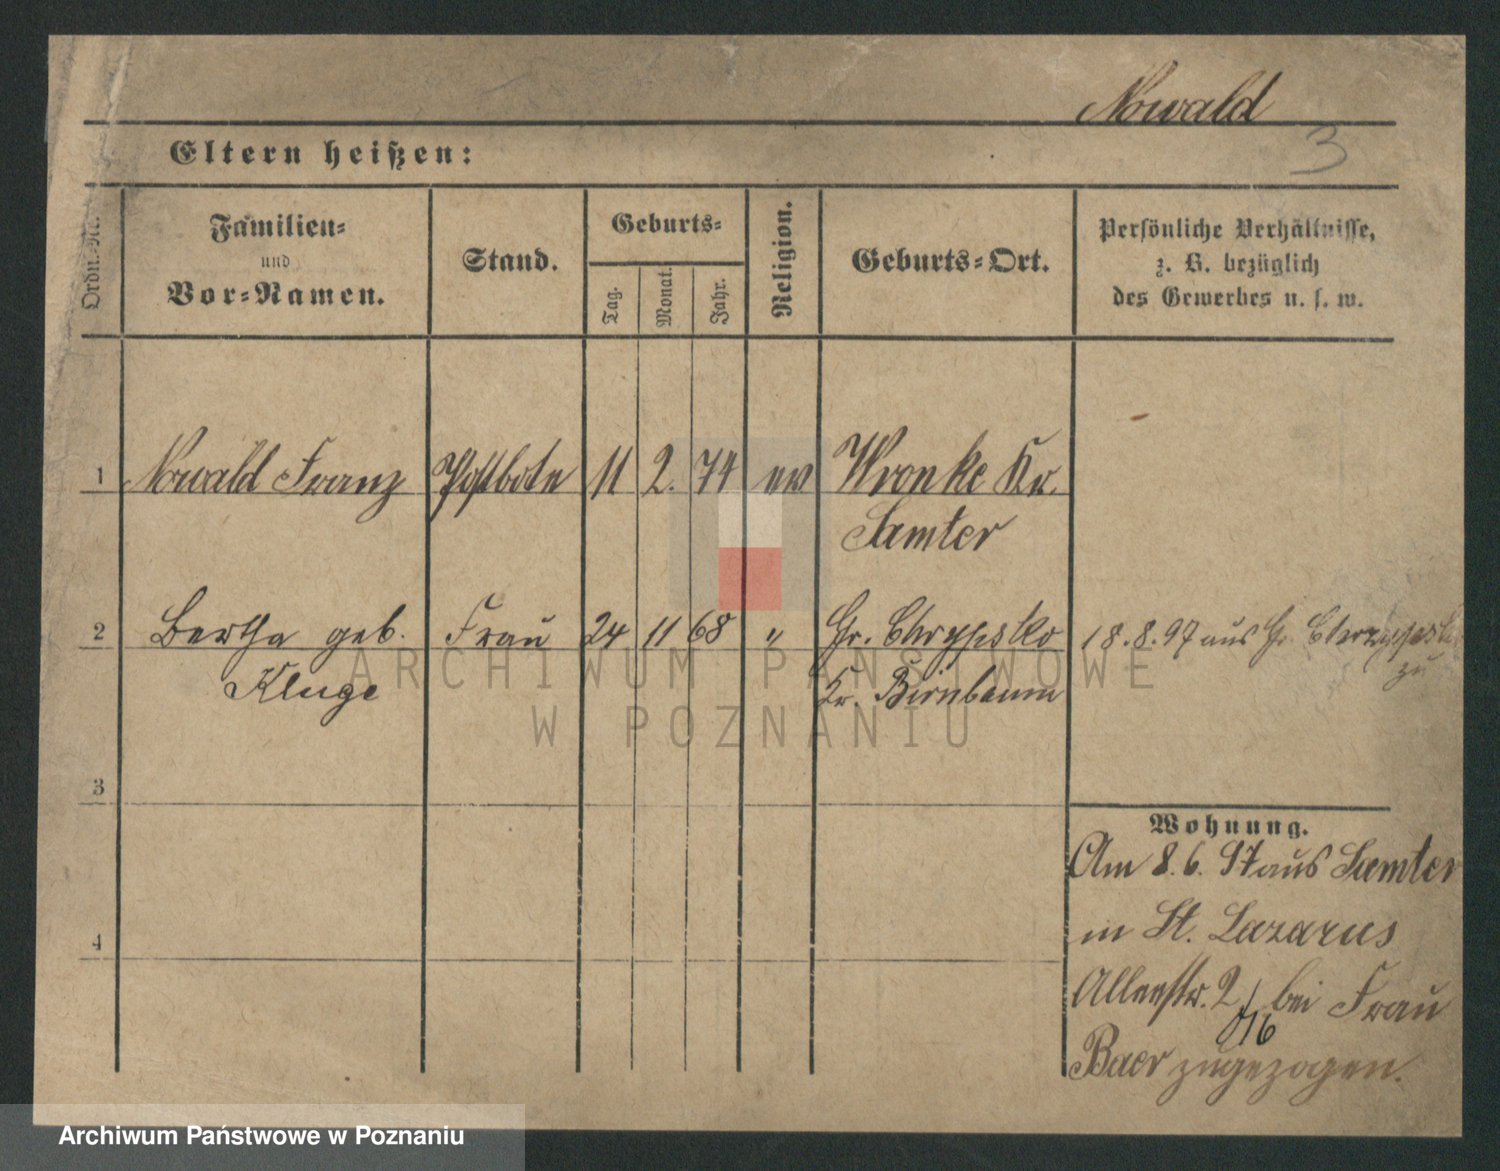 Nowald
3
Eltern heißen:
Ordn.-Nr.
Familien-
und
Vor-Namen.
Stand.
Geburts-
Tag.
Monat.
Jahr.
Religion.
Geburts-Ort.
Persönliche Verhältnisse,
z. B. bezüglich
des Gewerbes u. s. w.
1 Nowald Franz Postbote 11 2. 74 ev Wronke Kr.
Samter
2 Bertha geb. Frau 24 11 68 " Gr. Chrypsko 18.8.97 aus Gr.
zu
Kluge Kr. Birnbaum
ARCHIWUM PAŃSTWOWE
W POZNANIU
3
Wohnung.
Am 8.6.97 aus Samter
4
in St. Lazarus
Alleestr. 2 bei Frau
Baer zugezogen.
Archiwum Państwowe w Poznaniu